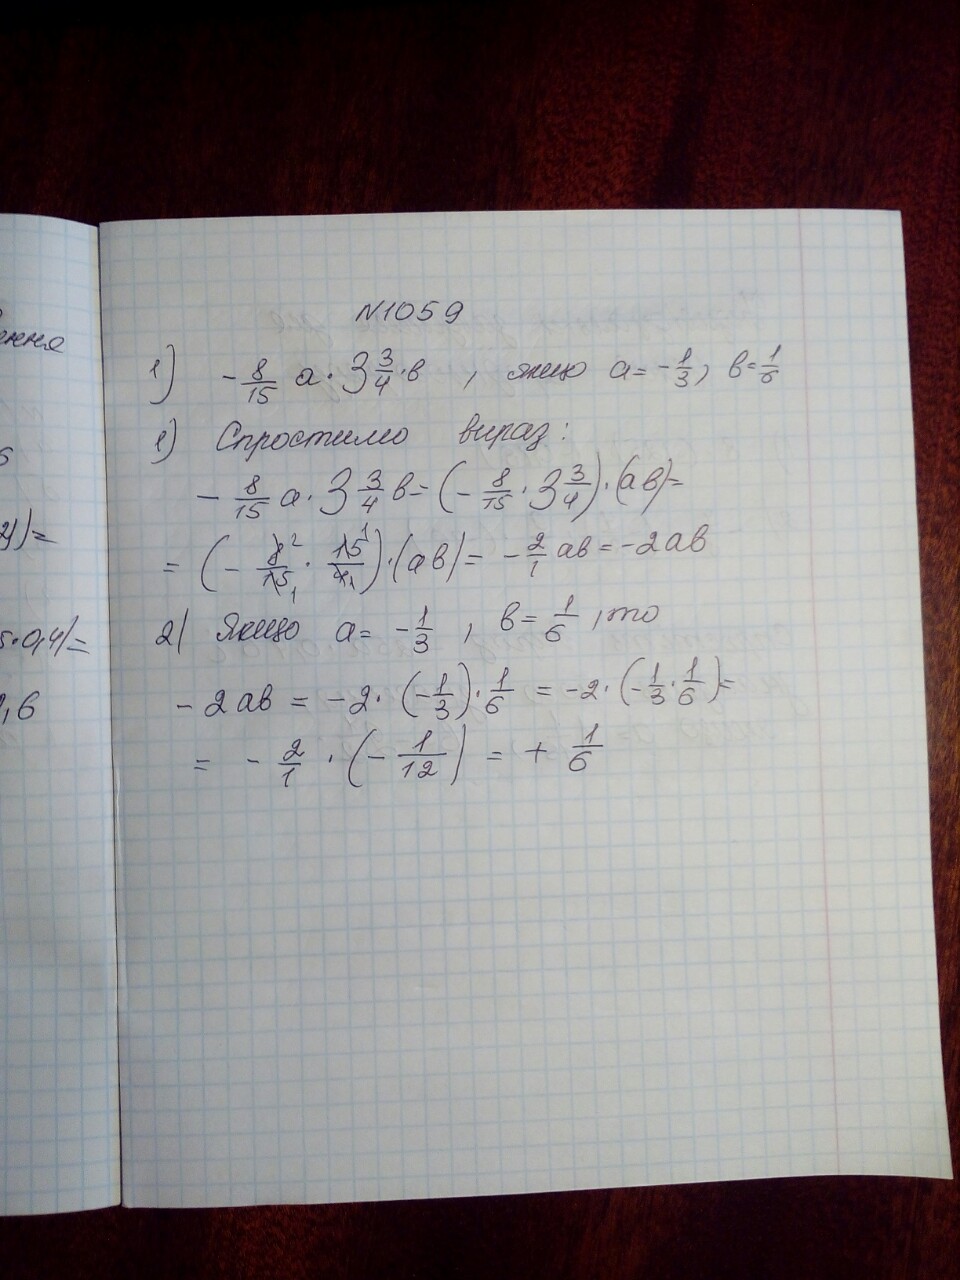 N1059
1) -8/15 a · 3 3/4 · в , якщо a = -1/3, в = 1/6
1) Спростимо вираз:
- 8/15 a · 3 3/4 в = (- 8/15 · 3 3/4) · (aв) =
= (- 8²/15₁ · 15¹/4₁) · (aв) = - 2/1 aв = -2aв
2) Якщо a = -1/3, в = 1/6, то
- 2aв = -2 · (-1/3) · 1/6 = -2 · (-1/3 · 1/6) =
= - 2/1 · (- 1/12) = + 1/6
ення
)=
5·0,4)=
,6